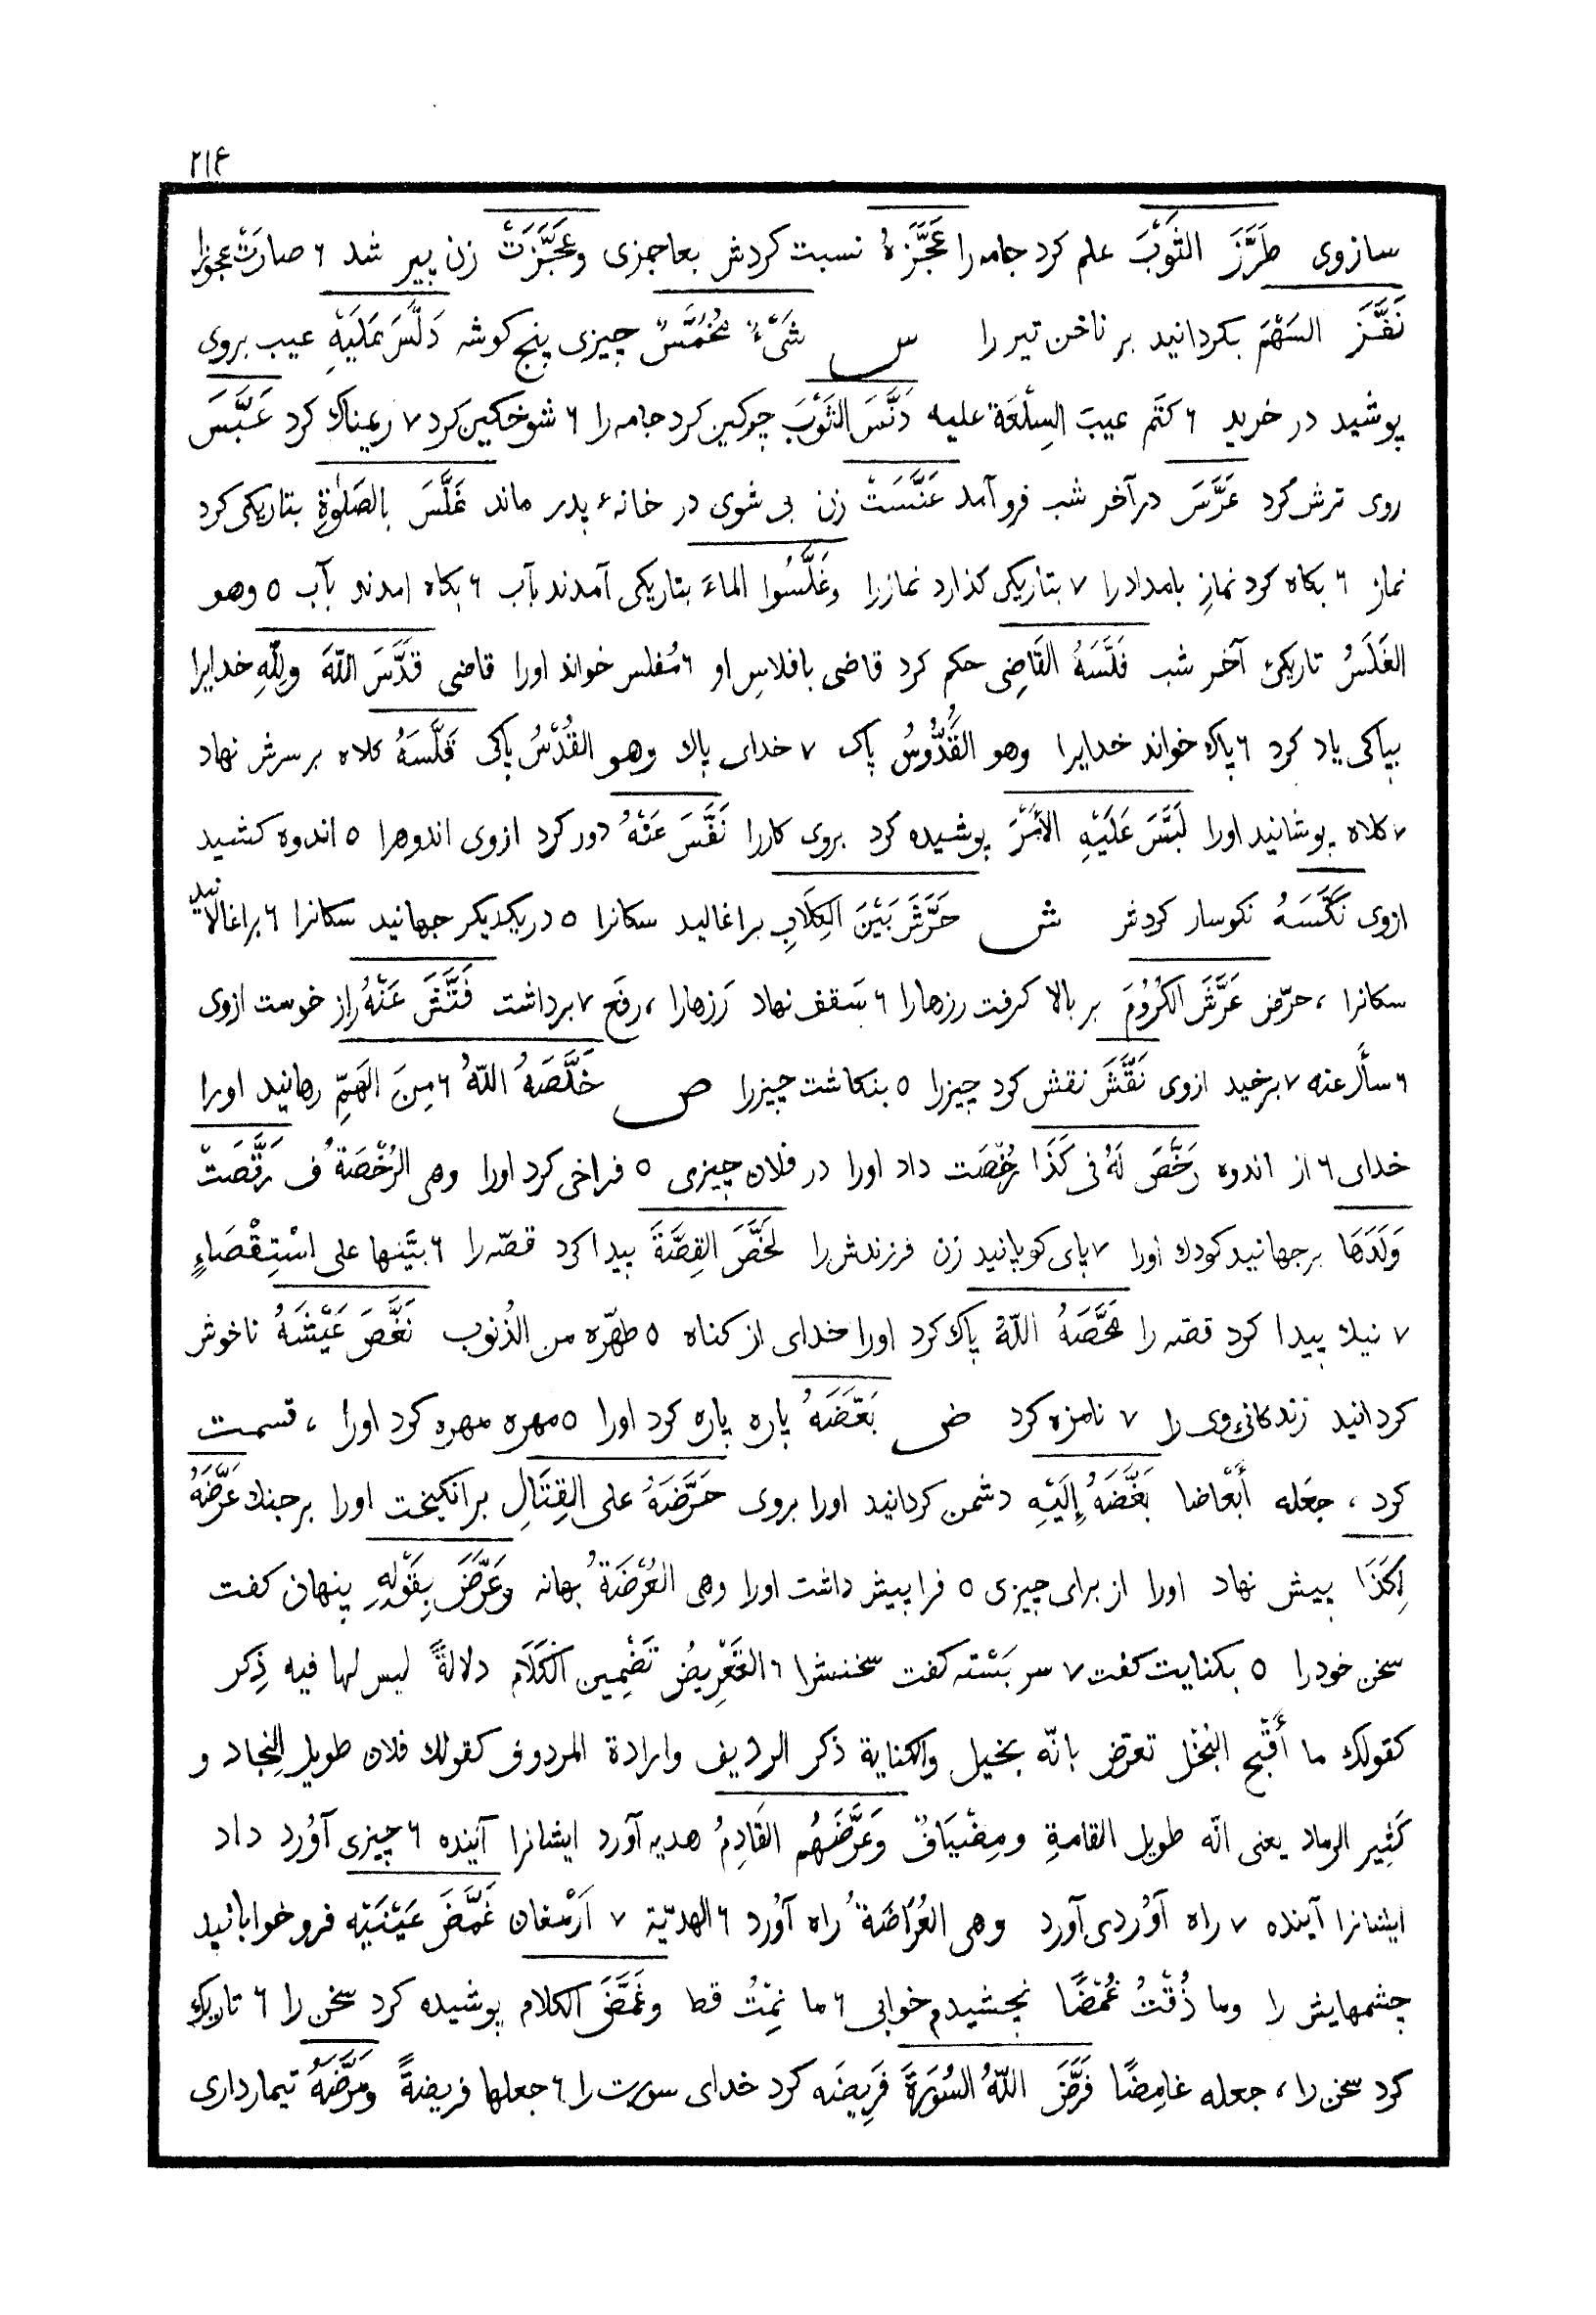 ۲۱۴
سازوی طَرَّزَ الثَوْبَ علم کرد جامه را عَجَّزَهُ نسبت کردش بعاجزی وعَجَّزَتْ زن پیر شد ۶ صارَتْ عجوزا
نَفَّزَ السَهْمَ بکردانید بر ناخن تیر را س شَیْءٌ مُخَمَّسٌ چیزی پنج کوشه دَلَّسَ عَلَیْهِ عیب بروی
پوشید در خرید ۶ کتَم عیبَ السِلْعَة علیه دَنَّسَ الثَوْبَ چرکین کرد جامه را ۶ شوخکین کرد ۷ ریمناک کرد عَبَّسَ
روی ترش کرد عَرَّسَ در آخر شب فرو آمد عَنَّسَتْ زن بی شوی در خانهٔ پدر ماند غَلَّسَ بِالصَلٰوةِ بتاریکی کرد
نماز ۶ بکاه کرد نمازِ بامداد را ۷ بتاریکی کذارد نماز را وغَلَّسُوا الماءَ بتاریکی آمدند بآب ۶ بکاه امدند بآب ۵ وهو
الغَلَسُ تاریکیٔ آخر شب فَلَّسَهُ القَاضِی حکم کرد قاضی بافلاسِ او ۶ مُفلس خواند اورا قاضی قَدَّسَ اللّهَ ولِلّهِ خدایرا
بپاکی یاد کرد ۶ پاک خواند خدایرا وهو القُدُّوسُ پاک ۷ خدای پاک وهو القُدْسُ پاکی قَلَّسَهُ کلاه بر سرش نهاد
۷ کلاه پوشانید اورا لَبَّسَ عَلَیْهِ الأمْرَ پوشیده کرد بروی کاررا نَفَّسَ عَنْهُ دور کرد ازوی اندوهرا ۵ اندوه کشید
ازوی نَکَّسَهُ نکوسار کردش ش حَرَّشَ بَیْنَ الکِلَابِ براغالید سکانرا ۵ دریکدیکر جهانید سکانرا ۶ براغالانید
سکانرا ، حرّض عَرَّشَ الکُرُومَ بر بالا کرفت رزهارا ۶ سَقف نهاد رَزهارا ، رفَع ۷ برداشت فَتَّشَ عَنْهُ راز خوست ازوی
۶ سأل عنه ۷ برخید ازوی نَقَّشَ نقش کرد چیزرا ۵ بنکاشت چیزرا ص خَلَّصَهُ اللّهُ ۶ مِنَ الهَمِّ رهانید اورا
خدای ۶ از اندوه رَخَّصَ لَهُ فی کَذَا رُخْصَت داد اورا در فلان چیزی ۵ فراخی کرد اورا وهی الرُخْصَةُ ف رَقَّصَتْ
وَلَدَهَا برجهانید کودک اورا ۷ پای کوبانید زن فرزندش را لَخَّصَ القِصَّةَ پیدا کرد قصّه را ۶ بیّنها علی اسْتِقْصَاءٍ
۷ نیک پیدا کرد قصّه را مَحَّصَهُ اللّهُ پاک کرد اورا خدای از کناه ۵ طهّره من الذُنوب نَغَّصَ عَیْشَهُ ناخوش
کردانید زندکانیٔ وی را ۷ نامزه کرد ض بَعَّضَهُ پاره پاره کرد اورا ۵ مهره مهره کرد اورا ، قسمت
کرد ، جعَله أَبْعَاضا بَغَّضَهُ إِلَیْهِ دشمن کردانید اورا بروی حَرَّضَهُ علی القِتَالِ برانکیخت اورا بر جنک عَرَّضَهُ
لِکَذَا پیش نهاد اورا از برای چیزی ۵ فرا پیش داشت اورا وهی العُرْضَةُ بهانه وعَرَّضَ بِقَوْلِهِ پنهان کفت
سخن خودرا ۵ بکنایت کفت ۷ سر بَسْته کفت سخنشرا ۶ التَعْرِیضُ تَضْمِین الکَلَام دلالةً لیس لها فیه ذِکر
کقولک ما أَقْبح البُخْل تعرّض بانّه بخیل والکنایة ذکر الردیف وارادة المردوف کقولک فلان طویل النِجاد و
کَثِیر الرماد یعنی انّه طویل القامةِ ومِضْیَافٌ وَعَرَّضَهُم القَادِمُ هدیه آورد ایشانرا آینده ۶ چیزی آوُرد داد
ایشانرا آینده ۷ راه آوُردی آورد وهی العُرَاضَةُ راه آوُرد ۶ الهدیّة ۷ اَرْمغان غَمَّضَ عَیْنَیْهِ فرو خوابانید
چشمهایش را وما ذُقْتُ غُمْضًا نچشیدم خوابی ۶ ما نِمْتُ قط وغَمَّضَ الکلام پوشیده کرد سخن را ۶ تاریک
کرد سخن را ، جعله غامِضًا فَرَّضَ اللّهُ السُورَةَ فَرِیضَه کرد خدای سورت را ۶ جعلها فریضةً ومَرَّضَهُ تیمارداری